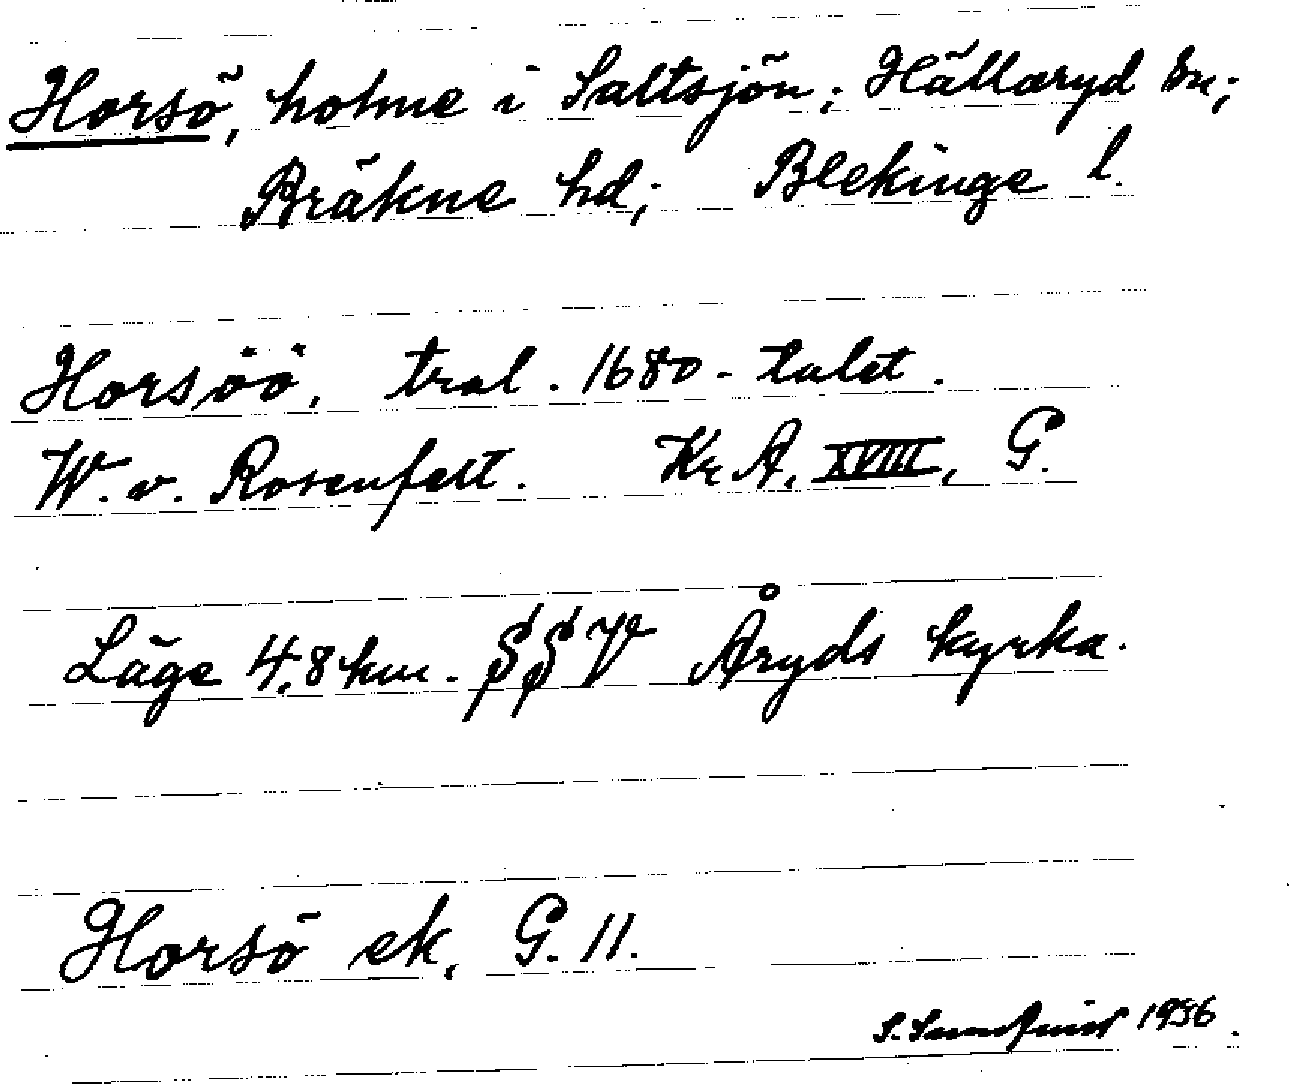 Horsö, holme i Saltsjön; Hällaryd sn;
Bräkne hd; Blekinge l.
Horsöö, tral. 1680-talet.
W. v. Rosenfelt. Kr A. XVIII, G.
Läge 4,8 km. SSV Åryds kyrka.
Horsö ek. G. 11.
S. Sundqvist 1956.